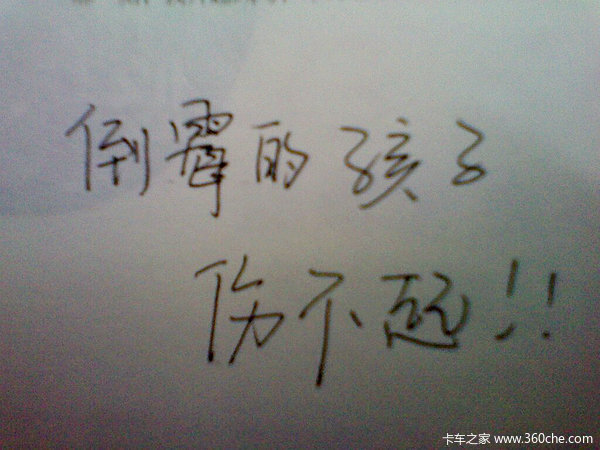 倒霉的孩子
伤不起!!
卡车之家 www.360che.com